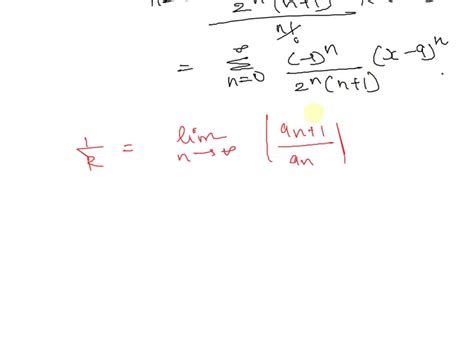 2ⁿ(n+1)
n!
= ∞∑n=0 (-1)ⁿ / 2ⁿ(n+1) (x-9)ⁿ.
1/R = lim n→∞ | an+1 / an |